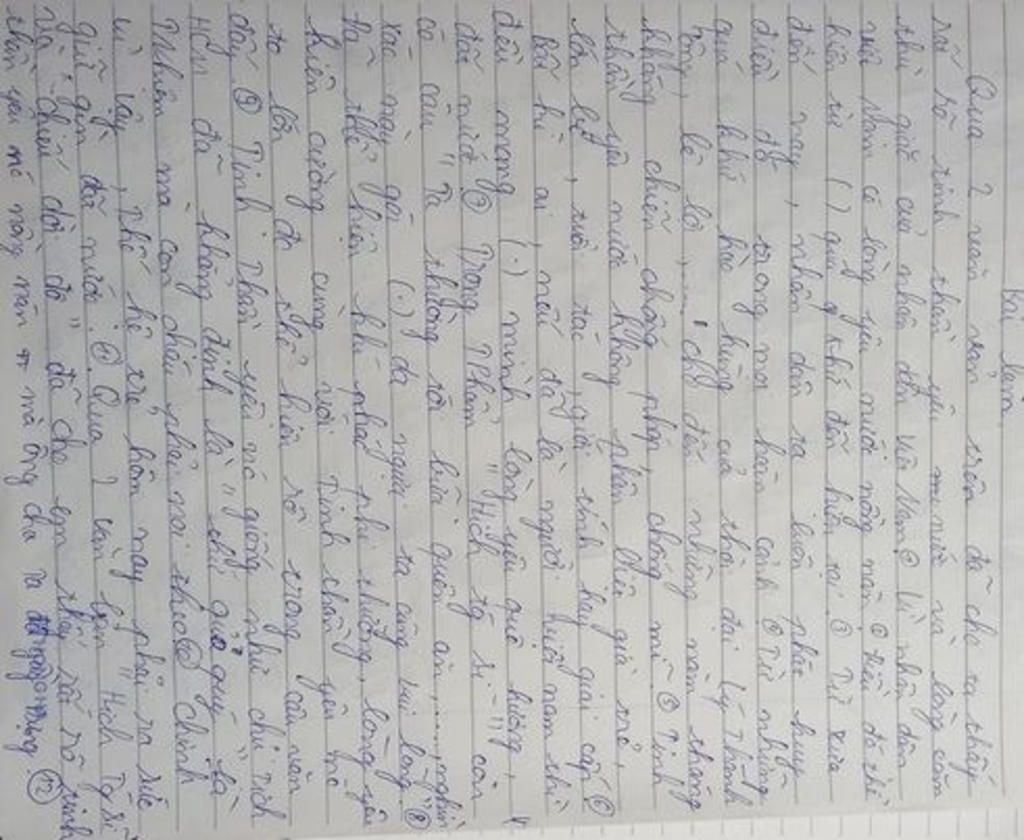 Bài làm
Qua 2 văn bản trên đã cho ta thấy
rất rõ tinh thần yêu nước và lòng căm
thù giặc của nhân dân Việt Nam ① Vì nhân dân
Việt Nam có lòng yêu nước nồng nàn ② điều đó thể
hiện từ ( ) quá khứ đến hiện tại ③ Từ xưa
đến nay, nhân dân ta luôn phát huy
điều đó trong mọi hoàn cảnh ④ Từ những
quá khứ hào hùng của thời đại Lý Thánh
Tông, Lê Lợi, ..... cho đến những năm tháng
kháng chiến chống pháp, chống mĩ ⑤ Tinh
thần yêu nước không phân biệt già trẻ,
lớn bé, tuổi tác, giới tính hay giai cấp ⑥
Bất kì ai, nếu đã là người Việt Nam thì
đều mang (.) mình lòng yêu quê hương,
đất nước ⑦ Trong Phẩm "Hịch tướng sĩ" còn
có câu "Ta thường tới bữa quên ăn, ...., nghìn
xác này gói (.) da ngựa ta cũng vui lòng" ⑧
đã thể hiện khí phách phi thường, lòng yêu
kiên cường cùng với tinh thần yêu nước
to lớn đã thể hiện rõ trong câu văn
đấy ⑨ Tinh thần yêu nước giống như chủ tịch
HCM đã khẳng định là "thứ của quý" là
Nhiệm mà con cháu phải noi theo ⑩ Chính
vì vậy, thế hệ trẻ hôm nay phải ra sức
giữ gìn đất nước ⑪ Qua 2 văn bản "Hịch Tướng sĩ"
và "chiếu dời đô" đã cho em thấy rất rõ tinh
thần yêu nước nồng nàn mà ông cha ta ⑫